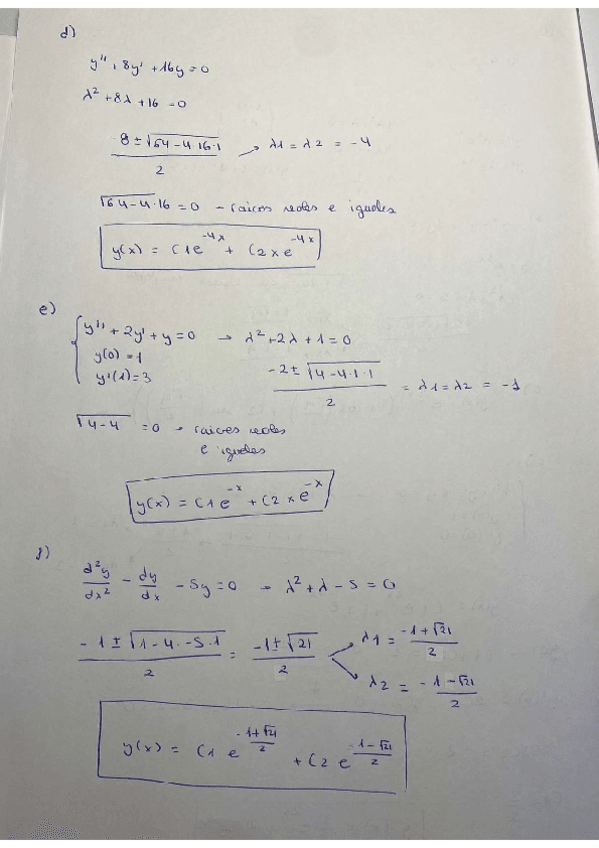 d)
y'' + 8y' + 16y = 0
λ² + 8λ + 16 = 0
8 ± √64 - 4·16·1 / 2 → λ1 = λ2 = -4
√64 - 4·16 = 0 → raices reales e iguales
y(x) = C1e^-4x + C2xe^-4x
e)
y'' + 2y' + y = 0 → λ² + 2λ + 1 = 0
y(0) = 1
y'(1) = 3
-2 ± √4 - 4·1·1 / 2 = λ1 = λ2 = -1
√4 - 4 = 0 → raices reales
e iguales
y(x) = C1e^-x + C2xe^-x
f)
d²y/dx² - dy/dx - 5y = 0 → λ² + λ - 5 = 0
-1 ± √1 - 4·-5·1 / 2 = -1 ± √21 / 2
λ1 = -1 + √21 / 2
λ2 = -1 - √21 / 2
y(x) = C1 e^-1+√21/2 + C2 e^-1-√21/2